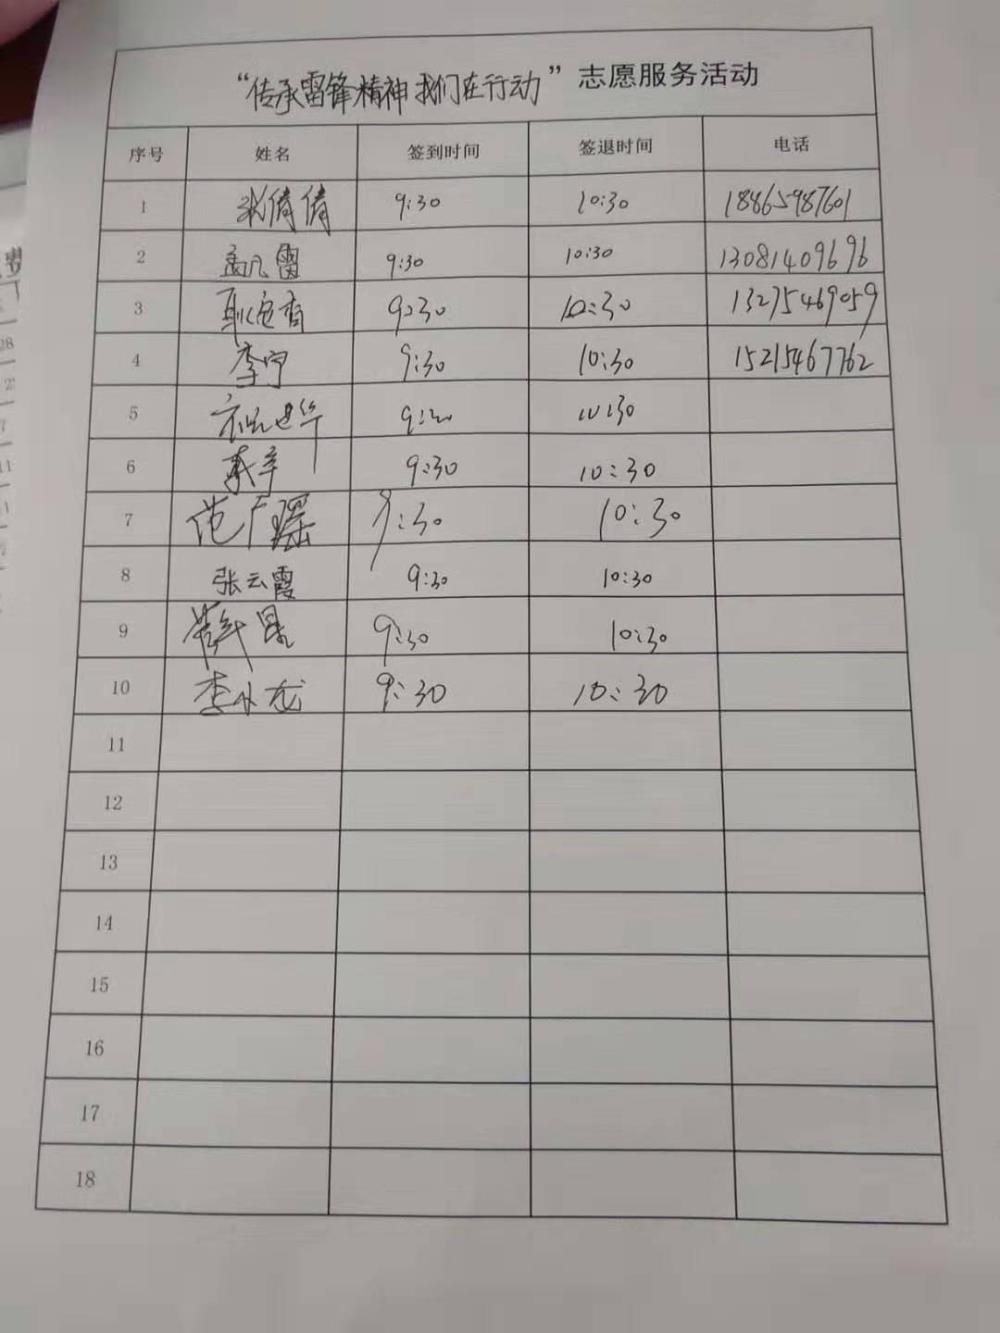 “传承雷锋精神 我们在行动”志愿服务活动
序号 姓名 签到时间 签退时间 电话
1 张倩倩 9:30 10:30 18865987601
2 孟凡雷 9:30 10:30 13081409696
3 9:30 10:30 13275469059
4 李宁 9:30 10:30 15215467762
5 9:30 10:30
6 9:30 10:30
7 范广瑶 9:30 10:30
8 张云霞 9:30 10:30
9 9:30 10:30
10 李小龙 9:30 10:30
11
12
13
14
15
16
17
18